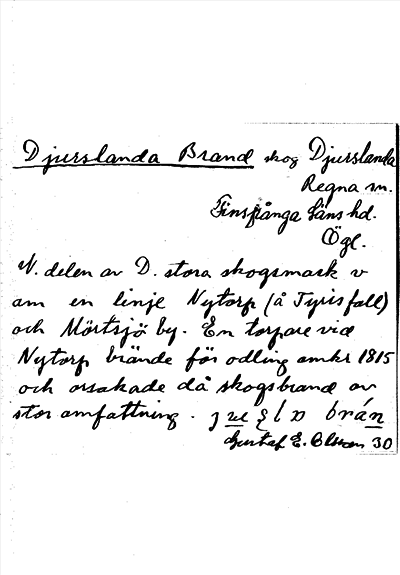 Djurslanda Brand skog Djurslanda
Regna sn.
Finspånga läns hd.
Ögl.
N. delen av D. stora skogsmark v
om en linje Nytorp (å Tyris fall)
och Mörtsjö by. En torpare vid
Nytorp brände för odling omkr 1815
och orsakade då skogsbrand av
stor omfattning.
brán
Gustaf E. Olsson 30